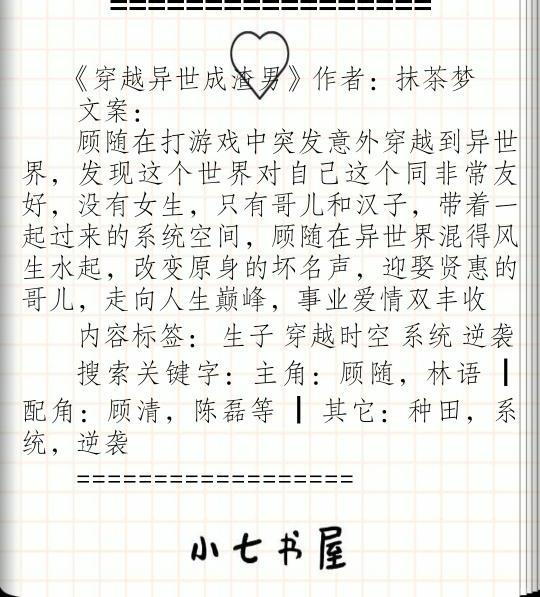 ==================
《穿越异世成渣男》作者：抹茶梦
文案：
顾随在打游戏中突发意外穿越到异世
界，发现这个世界对自己这个同非常友
好，没有女生，只有哥儿和汉子，带着一
起过来的系统空间，顾随在异世界混得风
生水起，改变原身的坏名声，迎娶贤惠的
哥儿，走向人生巅峰，事业爱情双丰收
内容标签：生子 穿越时空 系统 逆袭
搜索关键字：主角：顾随，林语 ┃
配角：顾清，陈磊等 ┃ 其它：种田，系
统，逆袭
==================
小七书屋